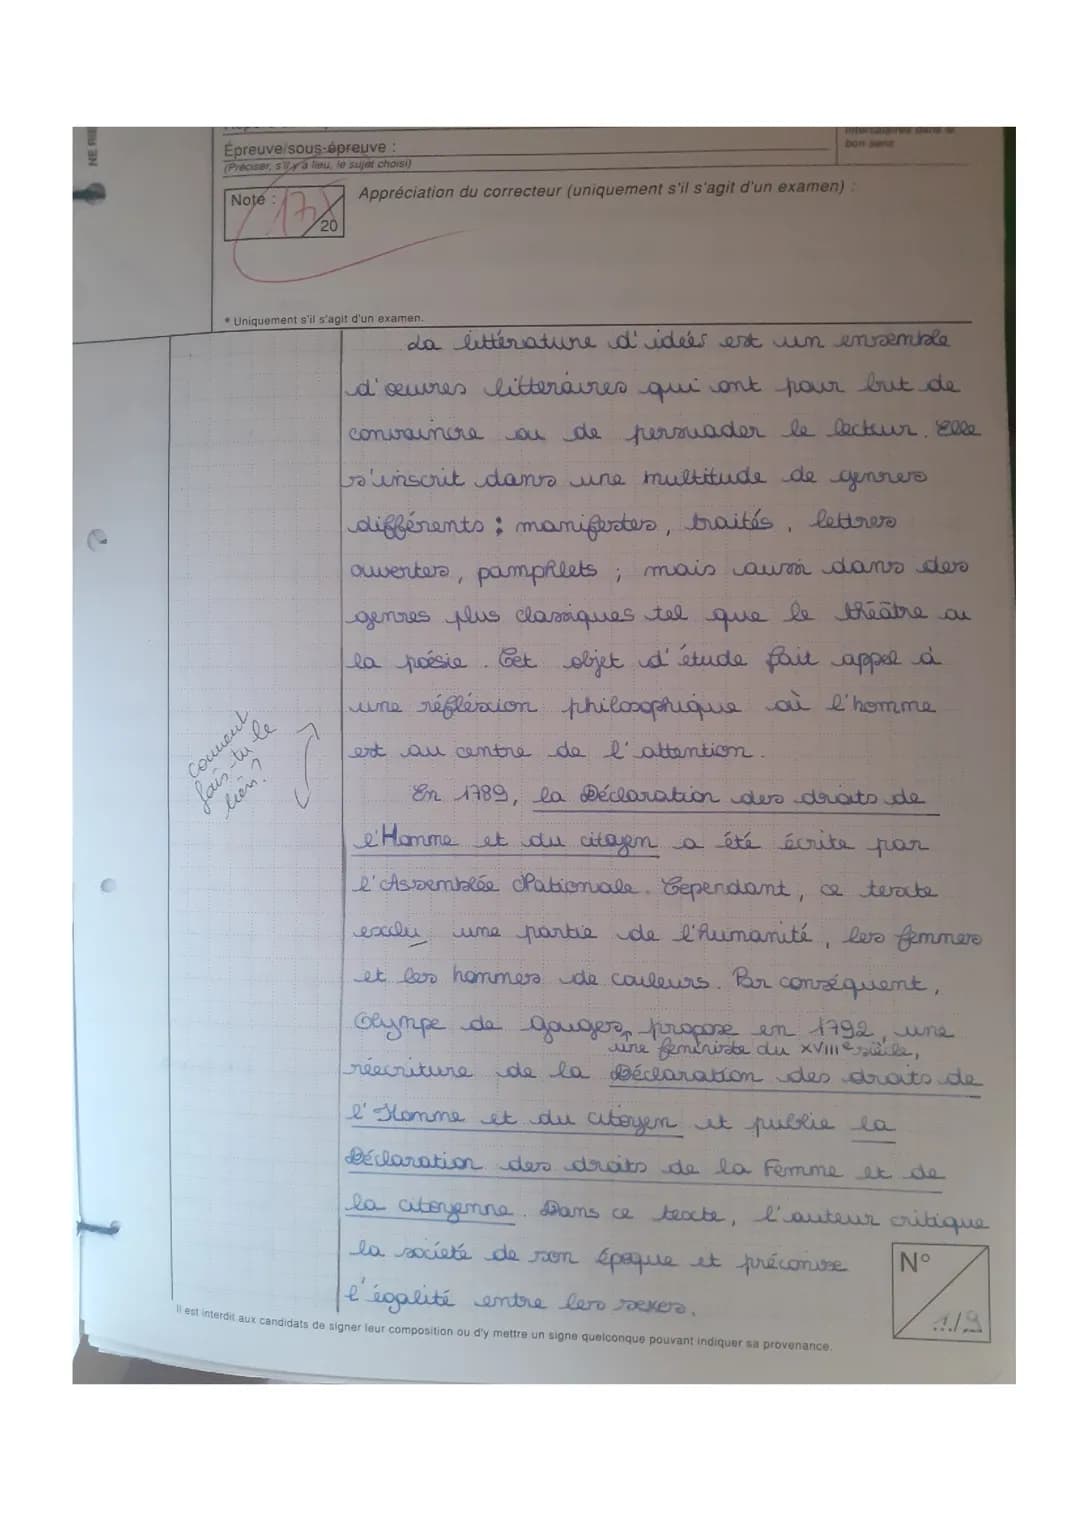 NE RE
Épreuve/sous-épreuve :
(Préciser, s'il y a lieu, le sujet choisi)
intercalaires dans le
bon sens
Note : 17/20
Appréciation du correcteur (uniquement s'il s'agit d'un examen) :
* Uniquement s'il s'agit d'un examen.
La littérature d'idées est un ensemble
d'œuvres littéraires qui ont pour but de
convaincre ou de persuader le lecteur. Elle
s'inscrit dans une multitude de genres
différents : manifestes, traités, lettres
ouvertes, pamphlets ; mais aussi dans des
genres plus classiques tel que le théâtre ou
la poésie. Cet objet d'étude fait appel à
une réfléxion philosophique où l'homme
est au centre de l'attention.
comment
fais-tu le
lien ?
En 1789, la Déclaration des droits de
l'Homme et du citoyen a été écrite par
l'Assemblée Nationale. Cependant, ce texte
exclu une partie de l'humanité, les femmes
et les hommes de couleurs. Par conséquent,
Olympe de Gouges, propose en 1792, une
une féministe du XVIIIe siècle,
réécriture de la Déclaration des droits de
l'Homme et du citoyen et publie la
Déclaration des droits de la Femme et de
la citoyenne. Dans ce texte, l'auteur critique
la société de son époque et préconise
l'égalité entre les sexes.
N°
1/9
Il est interdit aux candidats de signer leur composition ou d'y mettre un signe quelconque pouvant indiquer sa provenance.